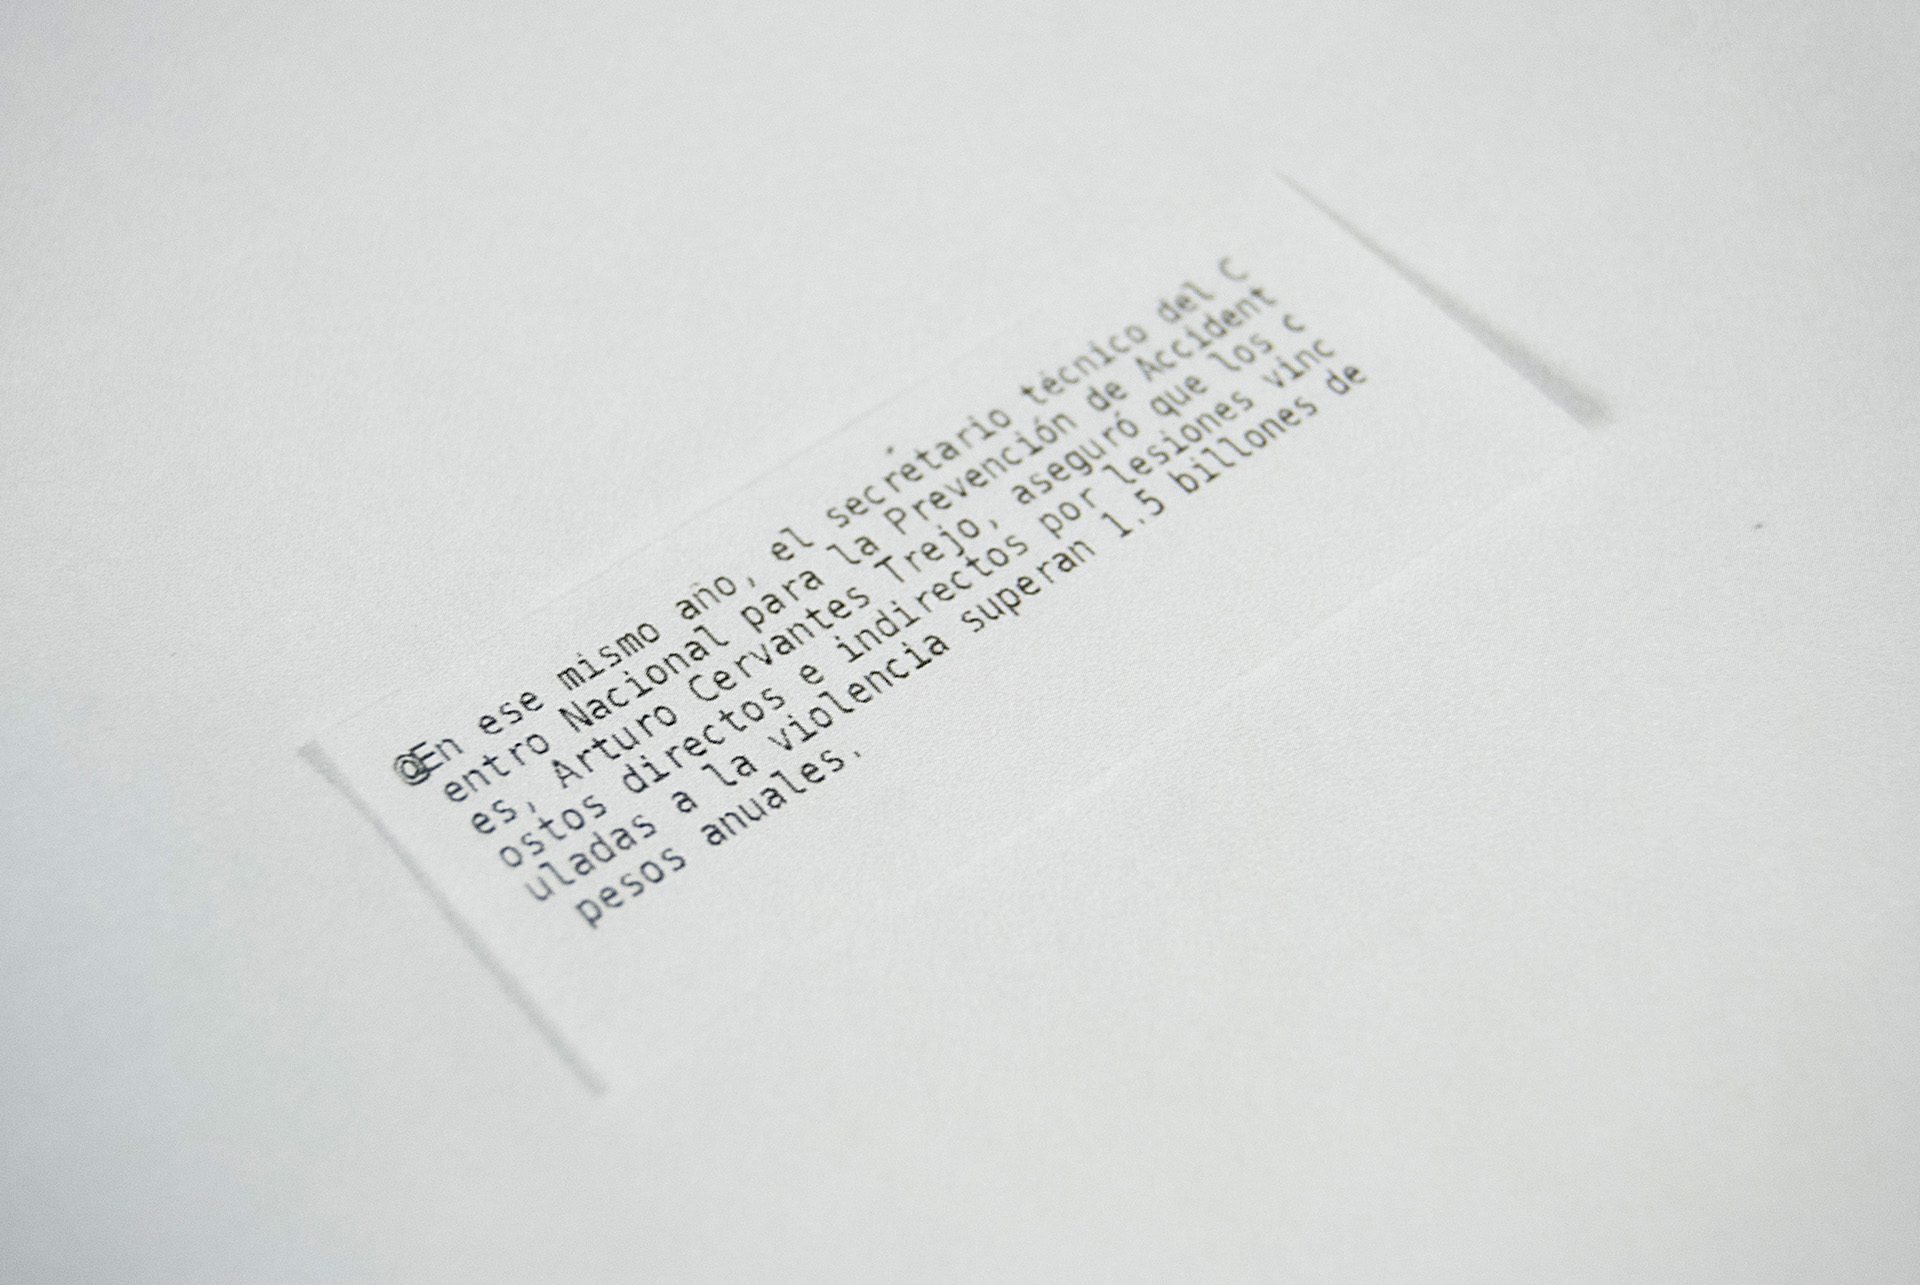 @En ese mismo año, el secretario técnico del C
entro Nacional para la Prevención de Accident
es, Arturo Cervantes Trejo, aseguró que los c
ostos directos e indirectos por lesiones vinc
uladas a la violencia superan 1.5 billones de
pesos anuales.